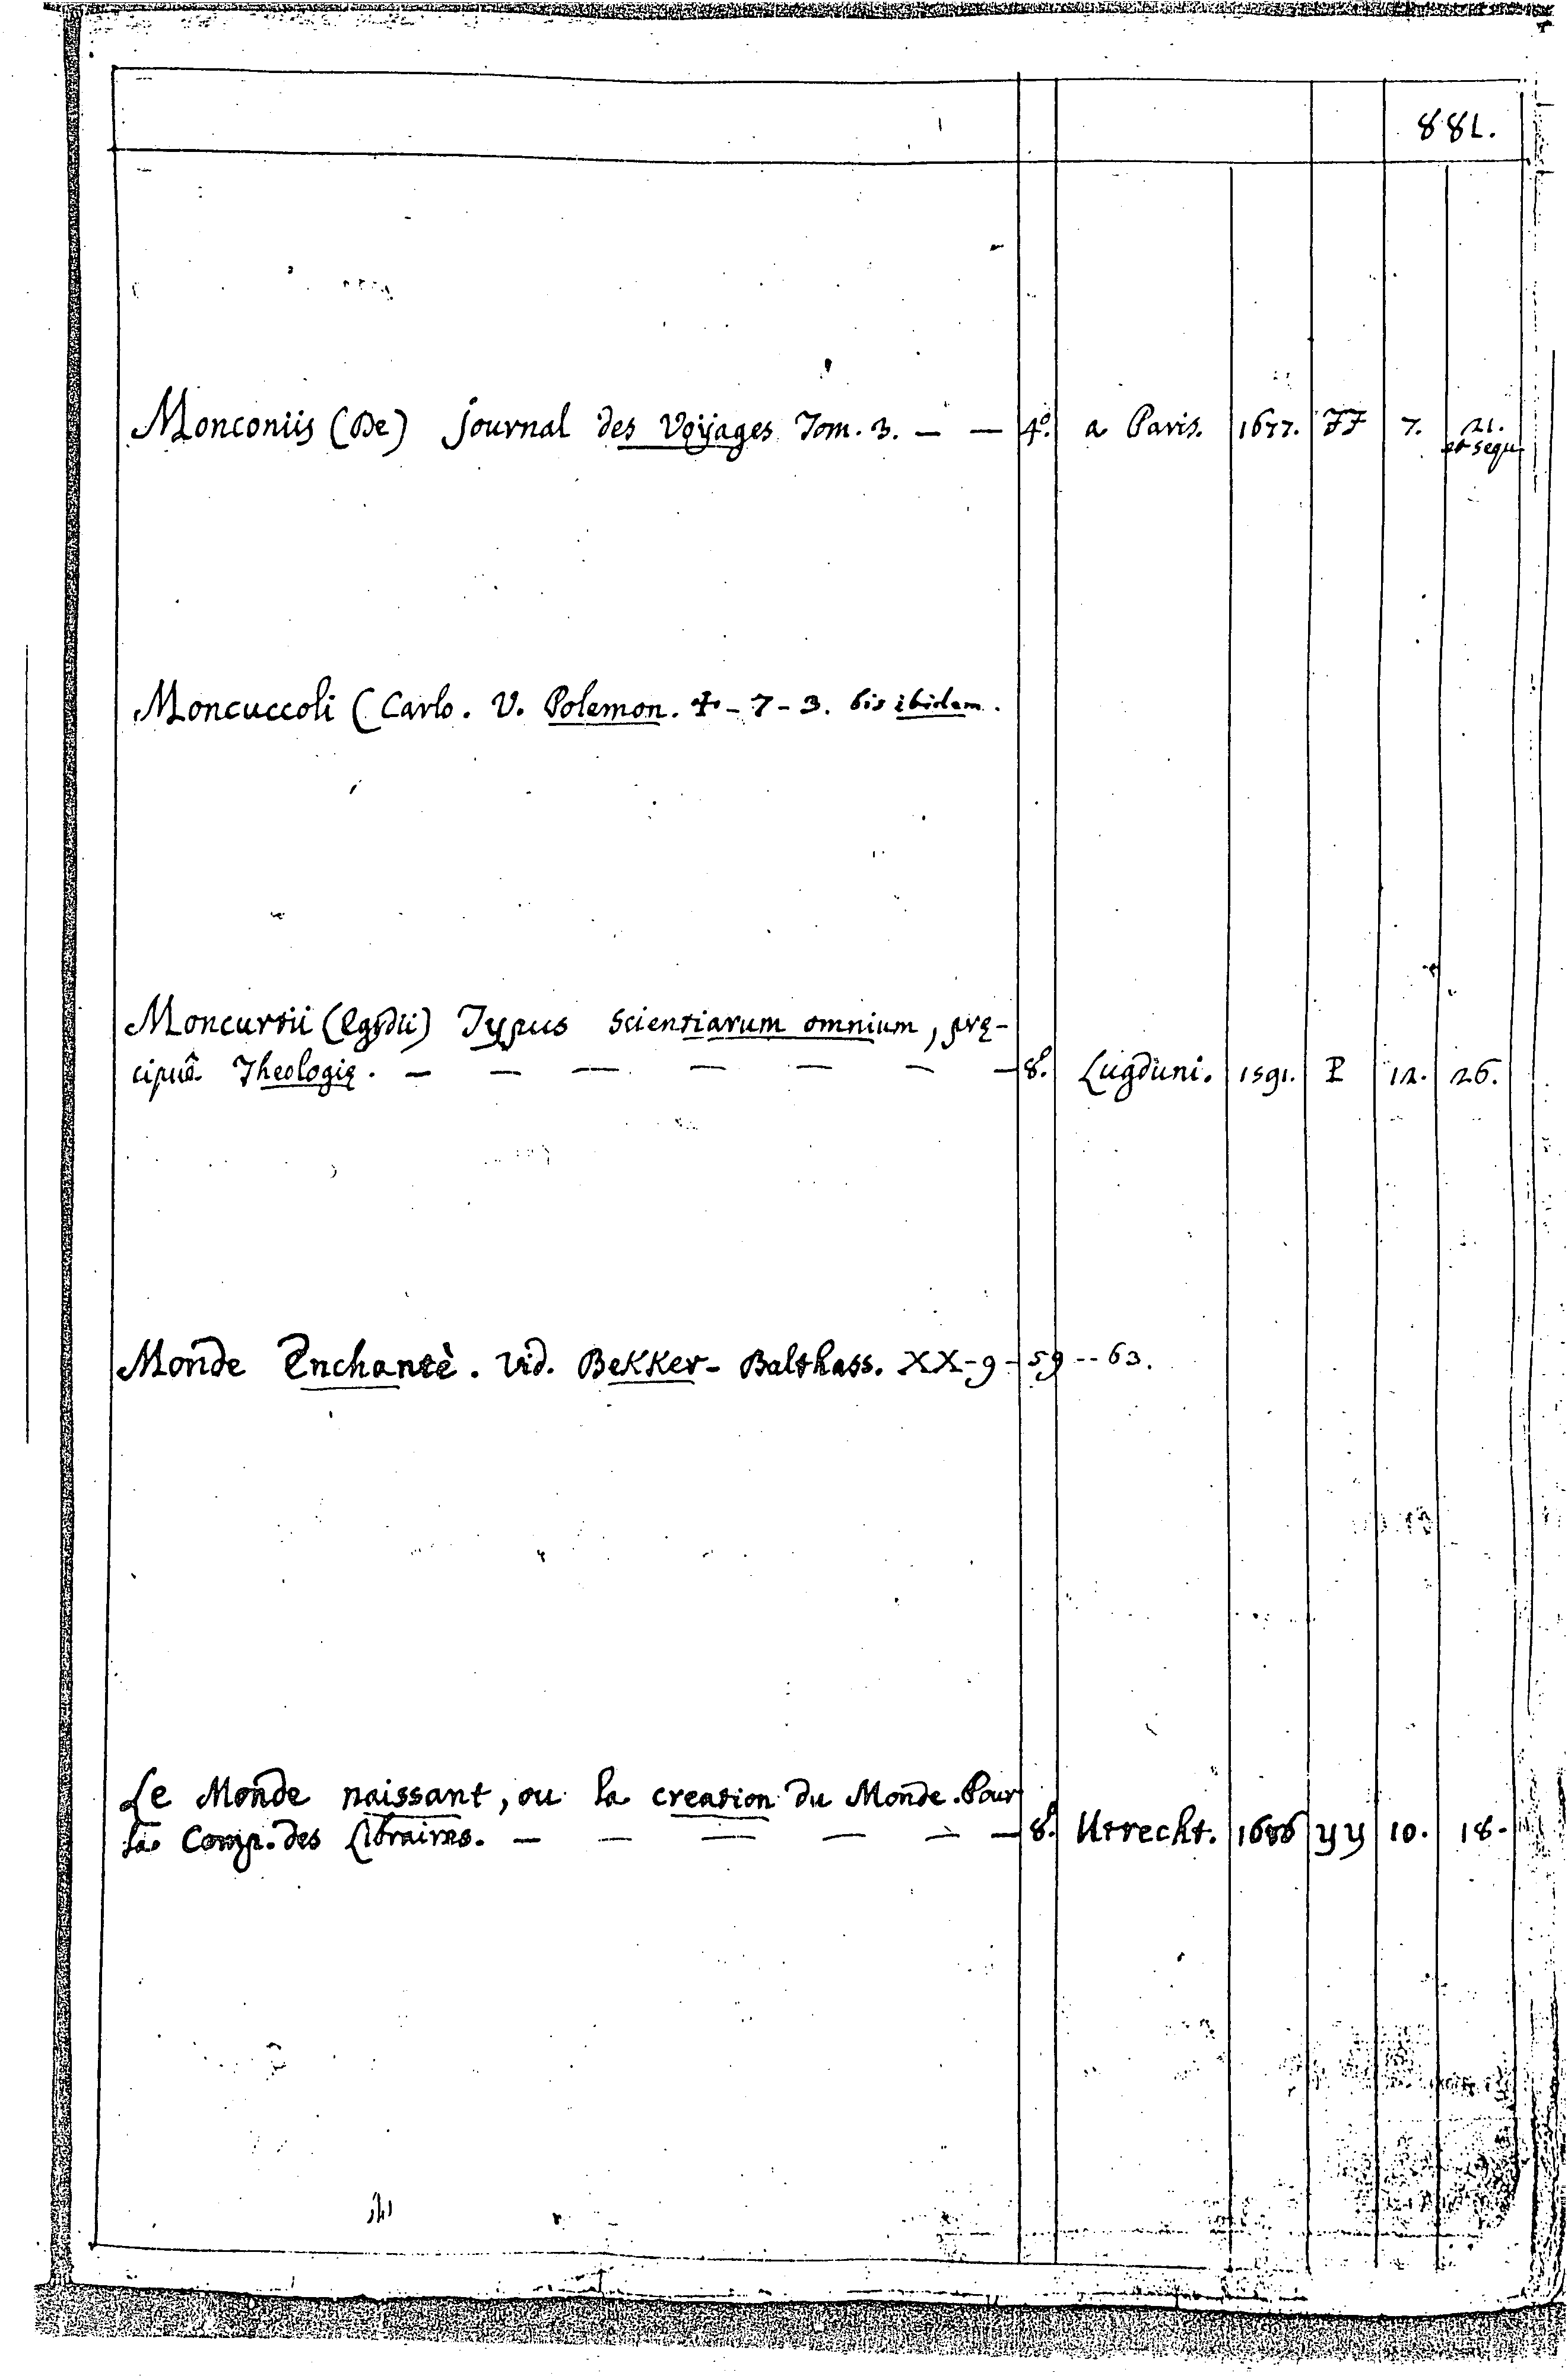 881.
Monconiis (De) Journal des Voÿages Tom. 3. — — 4º. a Paris. 1677. FF 7. 21.
et sequ
Moncuccoli (Carlo. V. Polemon. 4-7-3. bis ibidem.
Moncurtii (Egÿdii) Typus Scientiarum omnium, prę-
cipuê Theologię. — — — — — — — 8º. Lugduni. 1591. P 12. 26.
Monde Enchantè. Vid. BeKKer- Balthass. XX-9-59--63.
Le Monde naissant, ou la creation du Monde. Pour
la Comp. des Libraires. — — — — — — 8º. Utrecht. 1686 yy 10. 18.